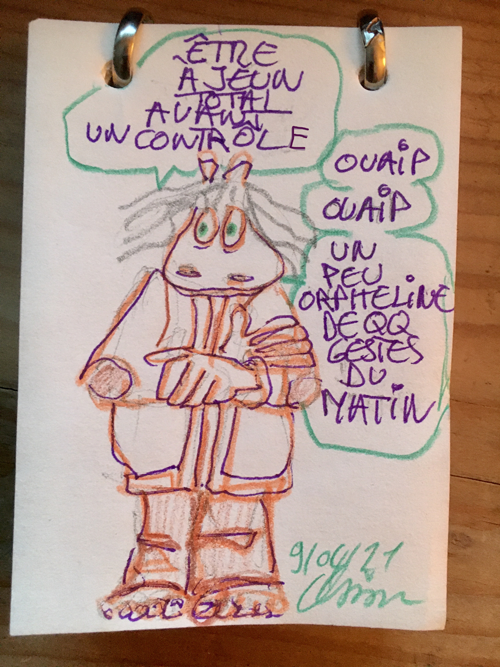 ÊTRE
A JEUN
TOTAL
AVANT
UN CONTRÔLE
OUAiP
OUAiP
UN
PEU
ORPHELiNE
DE QQ
GESTES
DU
MATiN
9/04/21